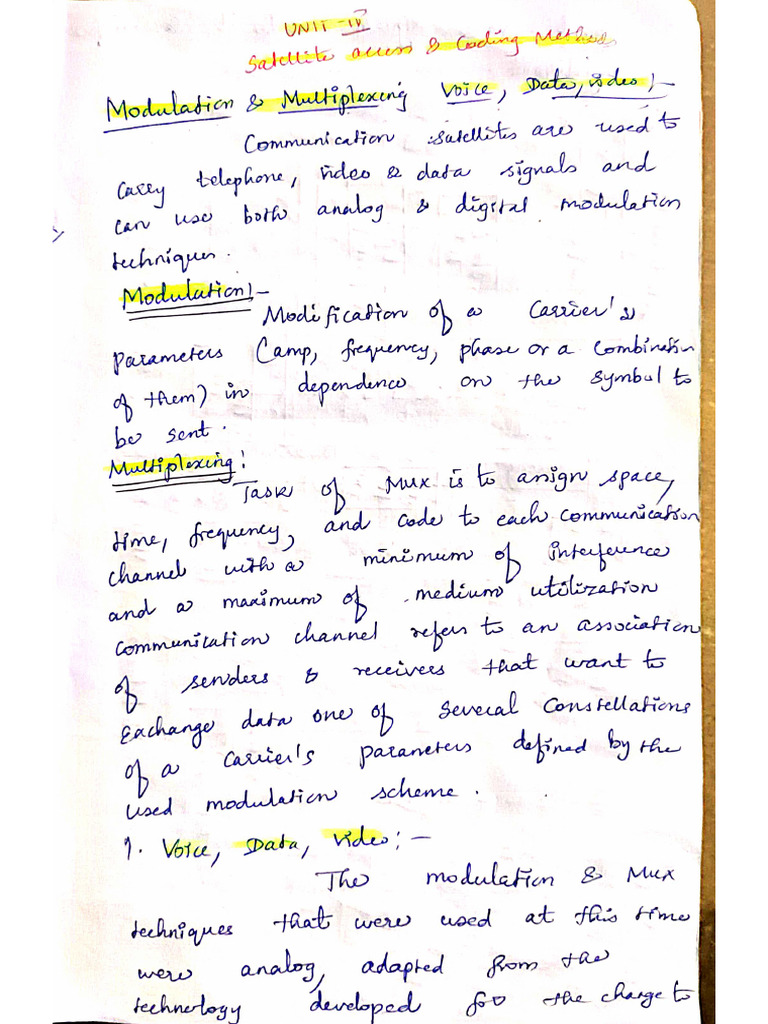 UNIT-IV
Satellite access & Coding Methods
Modulation & Multiplexing Voice, Data, video :-
Communication satellites are used to
carry telephone, video & data signals and
can use both analog & digital modulation
techniques.
Modulation :-
Modification of a Carrier's
parameters (amp, frequency, phase or a combination
of them) in dependence on the symbol to
be sent.
Multiplexing :
Task of Mux is to assign space,
time, frequency, and code to each communication
channel with a minimum of interference
and a maximum of medium utilization
communication channel refers to an association
of senders & receivers that want to
Exchange data one of several Constellations
of a carrier's parameters defined by the
used modulation scheme.
1. Voice, Data, Video :-
The modulation & Mux
techniques that were used at this time
were analog, adapted from the
technology developed for the change to